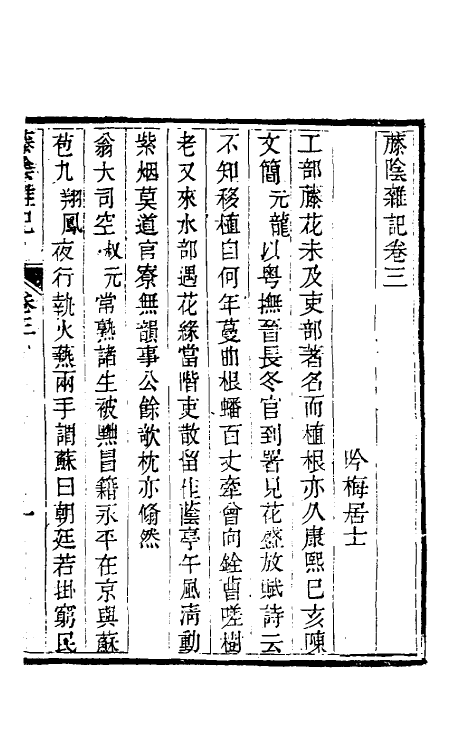 藤陰雜記卷三
吟梅居士
工部藤花未及吏部著名而植根亦久康熙己亥陳
文簡元龍以粵撫晉長冬官到署見花盛放賦詩云
不知移植自何年蔓曲根蟠百丈牽曾向銓曹嗟樹
老又來水部遇花緣當階吏散留佳蔭亭午風淸動
紫烟莫道官寮無韻事公餘欹枕亦翛然
翁大司空叔元常熟諸生被黜冒籍永平在京與蘇
苞九翔鳳夜行執火爇兩手謂蘇曰朝廷若掛窮民
藤陰雜記
卷三
一